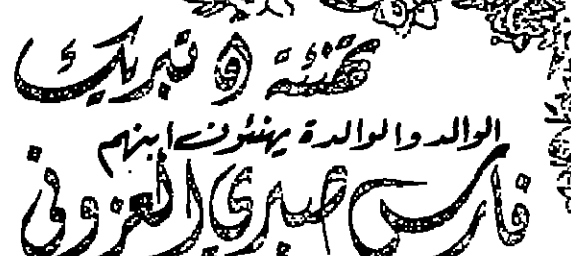 تهنئة و تبريك
الوالد والوالدة يهنئون ابنهم
فارس صبري العزوني